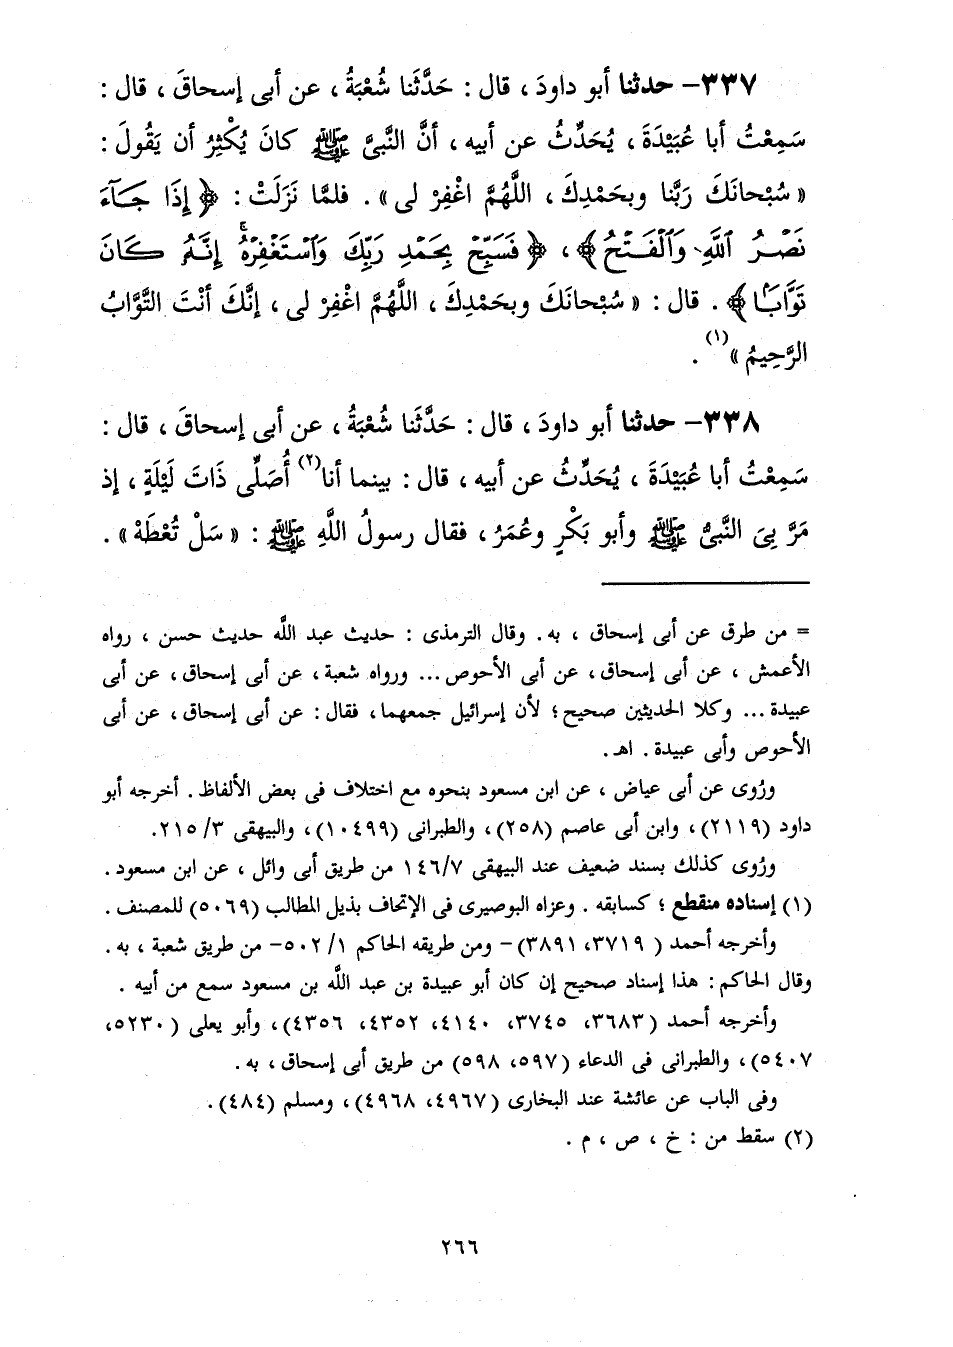 ٣٣٧- حدثنا أبو داودَ ، قال : حَدَّثَنا شُعْبَةُ ، عن أبى إسحاقَ ، قال :
سَمِعْتُ أبا عُبَيْدَةَ ، يُحَدِّثُ عن أبيه ، أنَّ النَّبىَّ ﷺ كانَ يُكْثِرُ أن يَقُولَ :
« سُبْحانَكَ رَبَّنا وبحَمْدِكَ ، اللَّهُمَّ اغْفِرْ لى » . فلمَّا نَزَلَتْ : ﴿ إِذَا جَآءَ
نَصْرُ ٱللَّهِ وَٱلْفَتْحُ﴾ ، ﴿ فَسَبِّحْ بِحَمْدِ رَبِّكَ وَٱسْتَغْفِرْهُۚ إِنَّهُۥ كَانَ
تَوَّابًۢا﴾ . قال : « سُبْحانَكَ وبحَمْدِكَ ، اللَّهُمَّ اغْفِرْ لى ، إنَّكَ أنْتَ التَّوَّابُ
الرَّحِيمُ »(١) .
٣٣٨- حدثنا أبو داودَ ، قال : حَدَّثَنا شُعْبَةُ ، عن أبى إسحاقَ ، قال :
سَمِعْتُ أبا عُبَيْدَةَ ، يُحَدِّثُ عن أبيه ، قال : بينما أنا(٢) أُصَلِّى ذَاتَ لَيْلَةٍ ، إذ
مَرَّ بِىَ النَّبىُّ ﷺ وأبو بَكْرٍ وعُمَرُ ، فقال رسولُ اللَّهِ ﷺ : « سَلْ تُعْطَهْ » .
= من طرق عن أبى إسحاق ، به . وقال الترمذى : حديث عبد اللَّه حديث حسن ، رواه
الأعمش ، عن أبى إسحاق ، عن أبى الأحوص ... ورواه شعبة ، عن أبى إسحاق ، عن أبى
عبيدة ... وكلا الحديثين صحيح ؛ لأن إسرائيل جمعهما ، فقال : عن أبى إسحاق ، عن أبى
الأحوص وأبى عبيدة . اهـ .
ورُوى عن أبى عياض ، عن ابن مسعود بنحوه مع اختلاف فى بعض الألفاظ . أخرجه أبو
داود (٢١١٩) ، وابن أبى عاصم (٢٥٨) ، والطبرانى (١٠٤٩٩) ، والبيهقى ٣/ ٢١٥.
ورُوى كذلك بسند ضعيف عند البيهقى ١٤٦/٧ من طريق أبى وائل ، عن ابن مسعود .
(١) إسناده منقطع ؛ كسابقه . وعزاه البوصيرى فى الإتحاف بذيل المطالب (٥٠٦٩) للمصنف .
وأخرجه أحمد ( ٣٧١٩، ٣٨٩١)- ومن طريقه الحاكم ١/ ٥٠٢- من طريق شعبة ، به .
وقال الحاكم : هذا إسناد صحيح إن كان أبو عبيدة بن عبد اللَّه بن مسعود سمع من أبيه .
وأخرجه أحمد ( ٣٦٨٣، ٣٧٤٥، ٤١٤٠، ٤٣٥٢، ٤٣٥٦) ، وأبو يعلى (٥٢٣٠،
٥٤٠٧) ، والطبرانى فى الدعاء (٥٩٧، ٥٩٨) من طريق أبى إسحاق ، به .
وفى الباب عن عائشة عند البخارى (٤٩٦٧، ٤٩٦٨) ، ومسلم (٤٨٤) .
(٢) سقط من : خ ، ص ، م .
٢٦٦